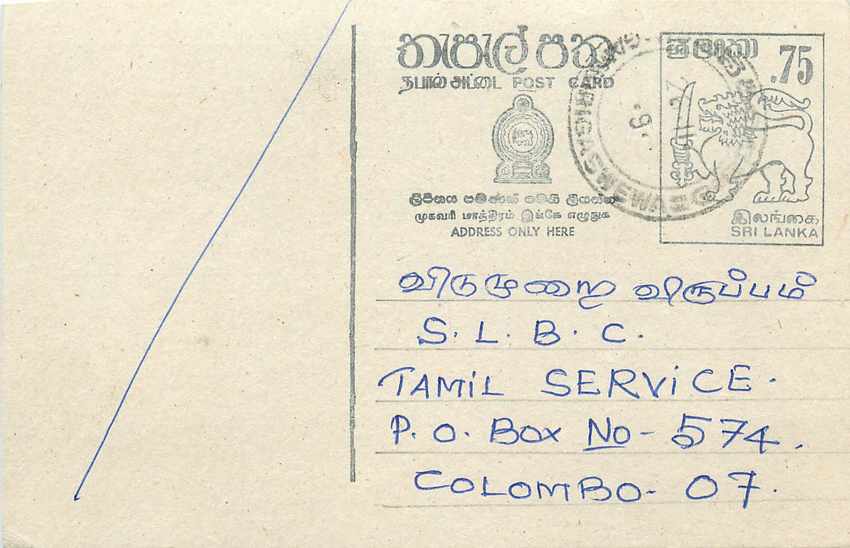 තැපැල් පත
தபால் அட்டை POST CARD
ලිපිනය පමණක් මෙහි ලියන්න
முகவரி மாத்திரம் இங்கே எழுதுக
ADDRESS ONLY HERE
ශ්‍රී ලංකා
.75
இலங்கை
SRI LANKA
விடுமுறை விருப்பம்
S. L. B. C.
TAMIL SERVICE.
P. O. BOX NO - 574.
COLOMBO - 07.